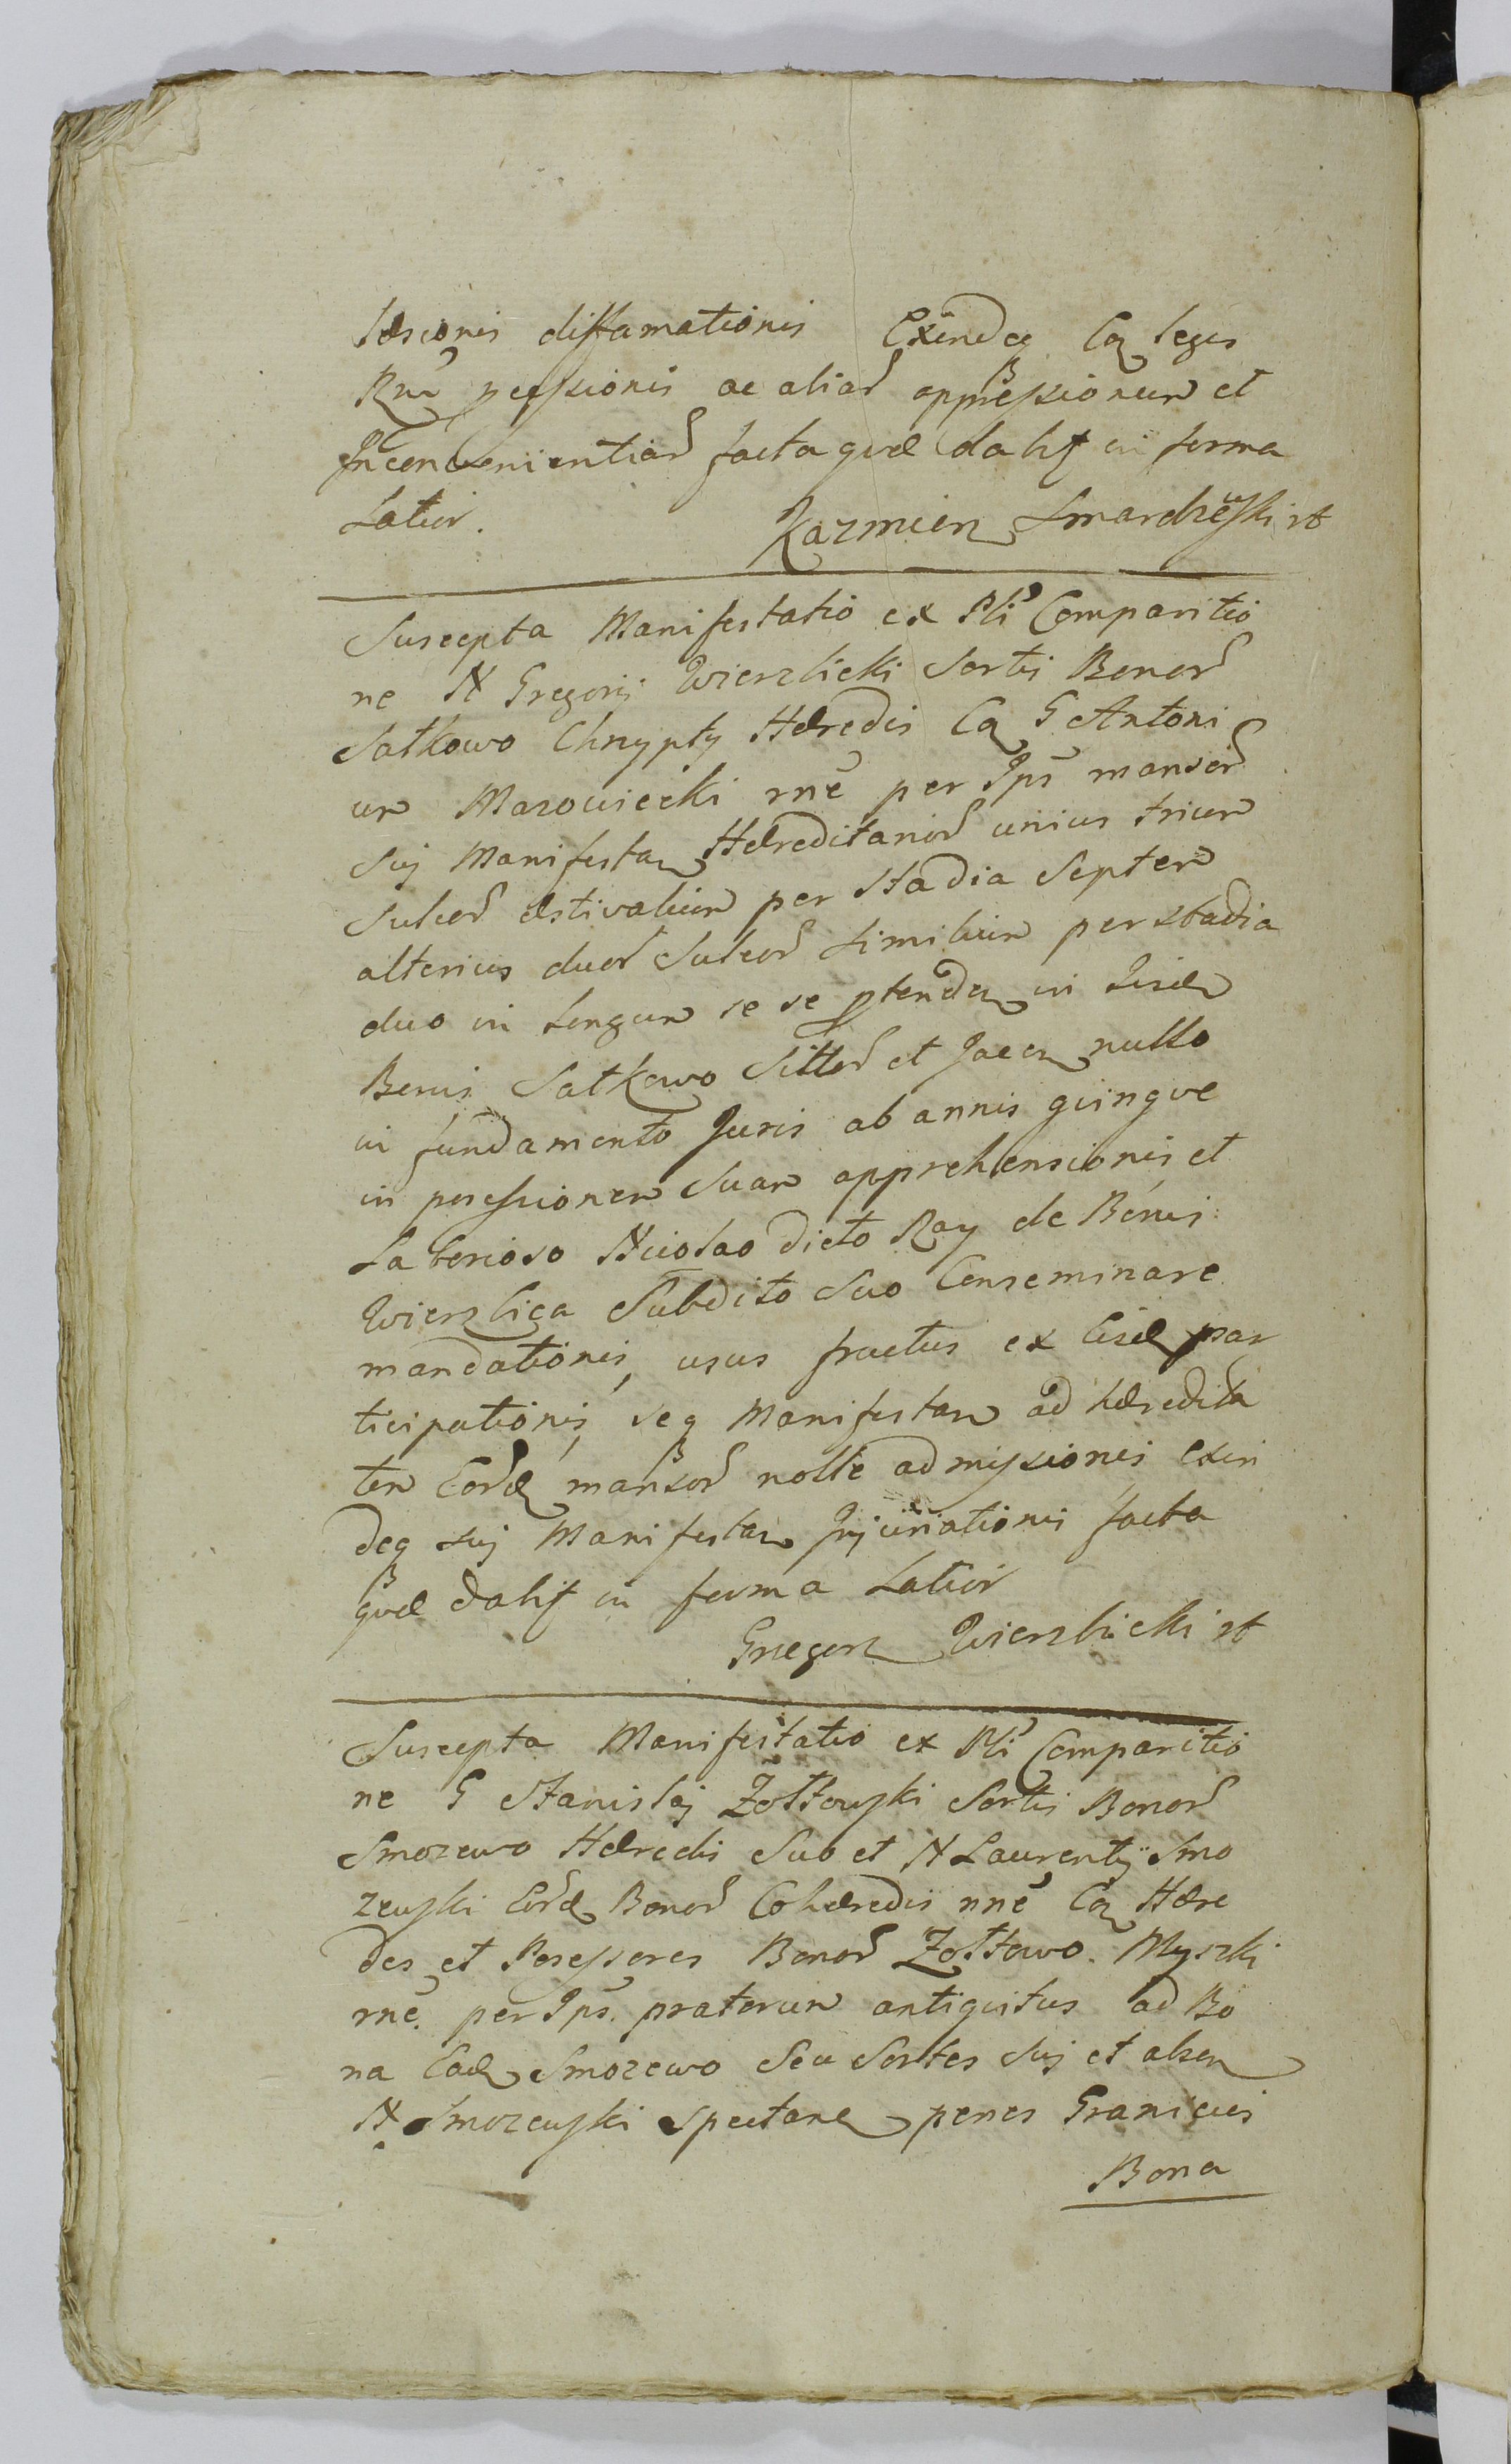 læsionis diffamationis Exindeq Cq leges
Rni pessionis ac aliar oppressionum et
Inconvenientiar facta quæ dabit in forma
Latior. Kazmierz Smardzewski st
Suscepta Manifestatio ex Pli Comparitio
ne N Gregorij Wierzbicki Sortis Bonor
Satkowo Chrypty Hæredis Cq G Antoni
um Mazowiecki rne per Ips mansor
Sui Manifestan Hæreditarior unius trium
Sulcor æstivalium per Stadia Septem
alterius duor Sulcor Similium per stadia
duo in Longum se se ptenden in Iisdem
Bonis Satkowo Sittor et Jacen nullo
in fundamento Juris ab annis quinque
in posessionem Suam apprehensionis et
Laborioso Nicolao dicto Ray de Bonis
Wierzbica Subdito Suo Conseminare
mandationis, usus fructus ex Eisd par
ticipationis, seq Manifestan ad hæredita
tem Eord mansor nolle admissionis exin
deq sui Manifestan Injuriationis facta
quæ dabit in forma Latior
Grzegorz Wierzbicki st
Suscepta Manifestatio ex Pli Comparitio
ne G Stanislai Żółtowski Sortis Bonor
Smozewo Hæredis Suo et N Laurentij Smo
zewski Eord Bonor Cohæredis nne Cq Hære
des et Posessores Bonor Zołtowo. Myszki
rne. per Ips. pratorum antiquitus ad Bo
na Ead Smozewo Seu Sortes Sui et absen
N. Smozewski Spectan penes Granicies
Bona